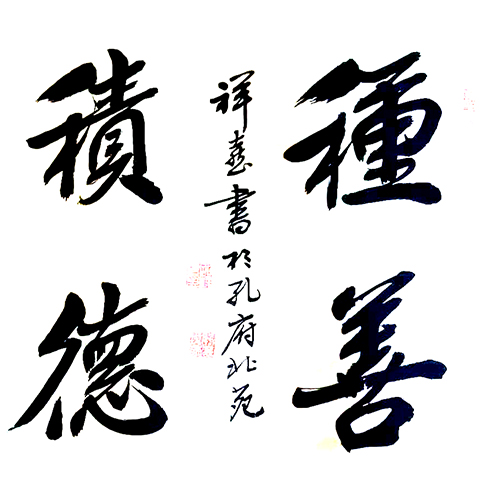 種善
祥喜書於孔府北苑
積德